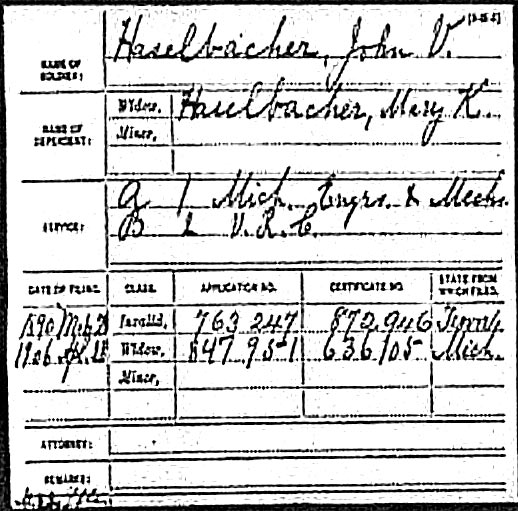 [3-15-2]
NAME OF SOLDIER: Haselbacher, John V.
NAME OF DEPENDENT: Widow, Haselbacher, Mary K.
Minor,
SERVICE: G 1 Mich. Engrs. & Mechs.
B 2 V.R.C.
DATE OF FILING. CLASS. APPLICATION NO. CERTIFICATE NO. STATE FROM WHICH FILED.
1890 Invalid, 763 247 872,946
1906 Widow, 847 951 636105 Mich.
Minor,
ATTORNEY:
REMARKS: